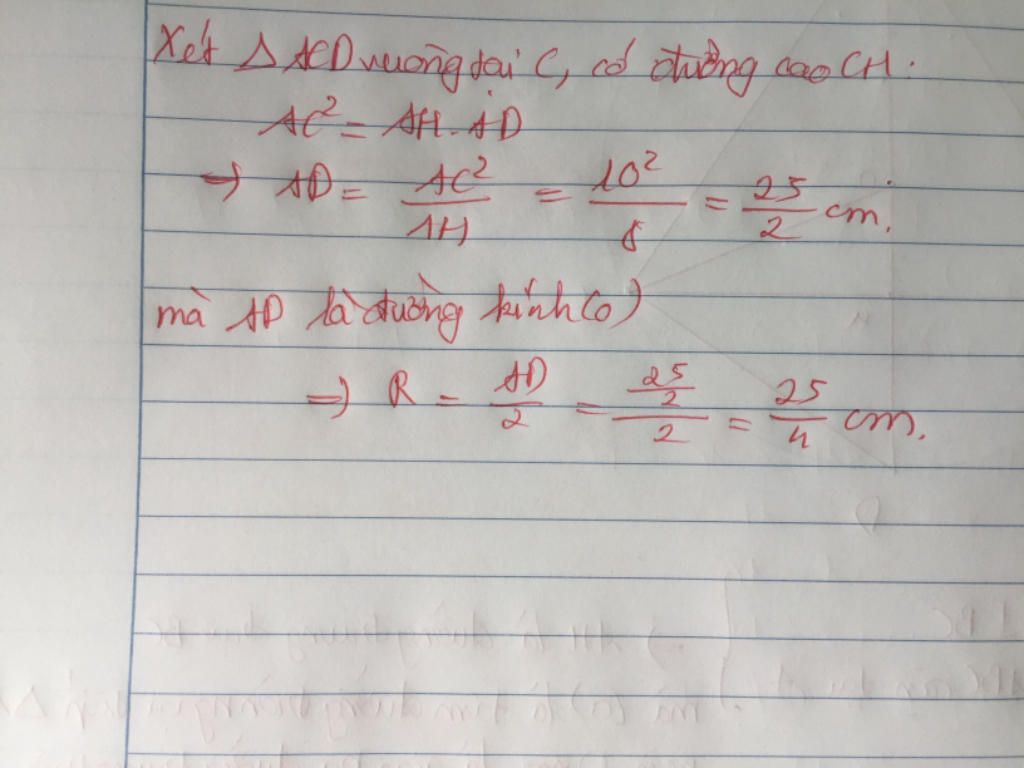 Xét Δ ACD vuông tại C, có đường cao CH:
AC² = AH.AD
→ AD = AC²/AH = 10²/8 = 25/2 cm.
mà AD là đường kính (O)
=> R = AD/2 = (25/2)/2 = 25/4 cm.